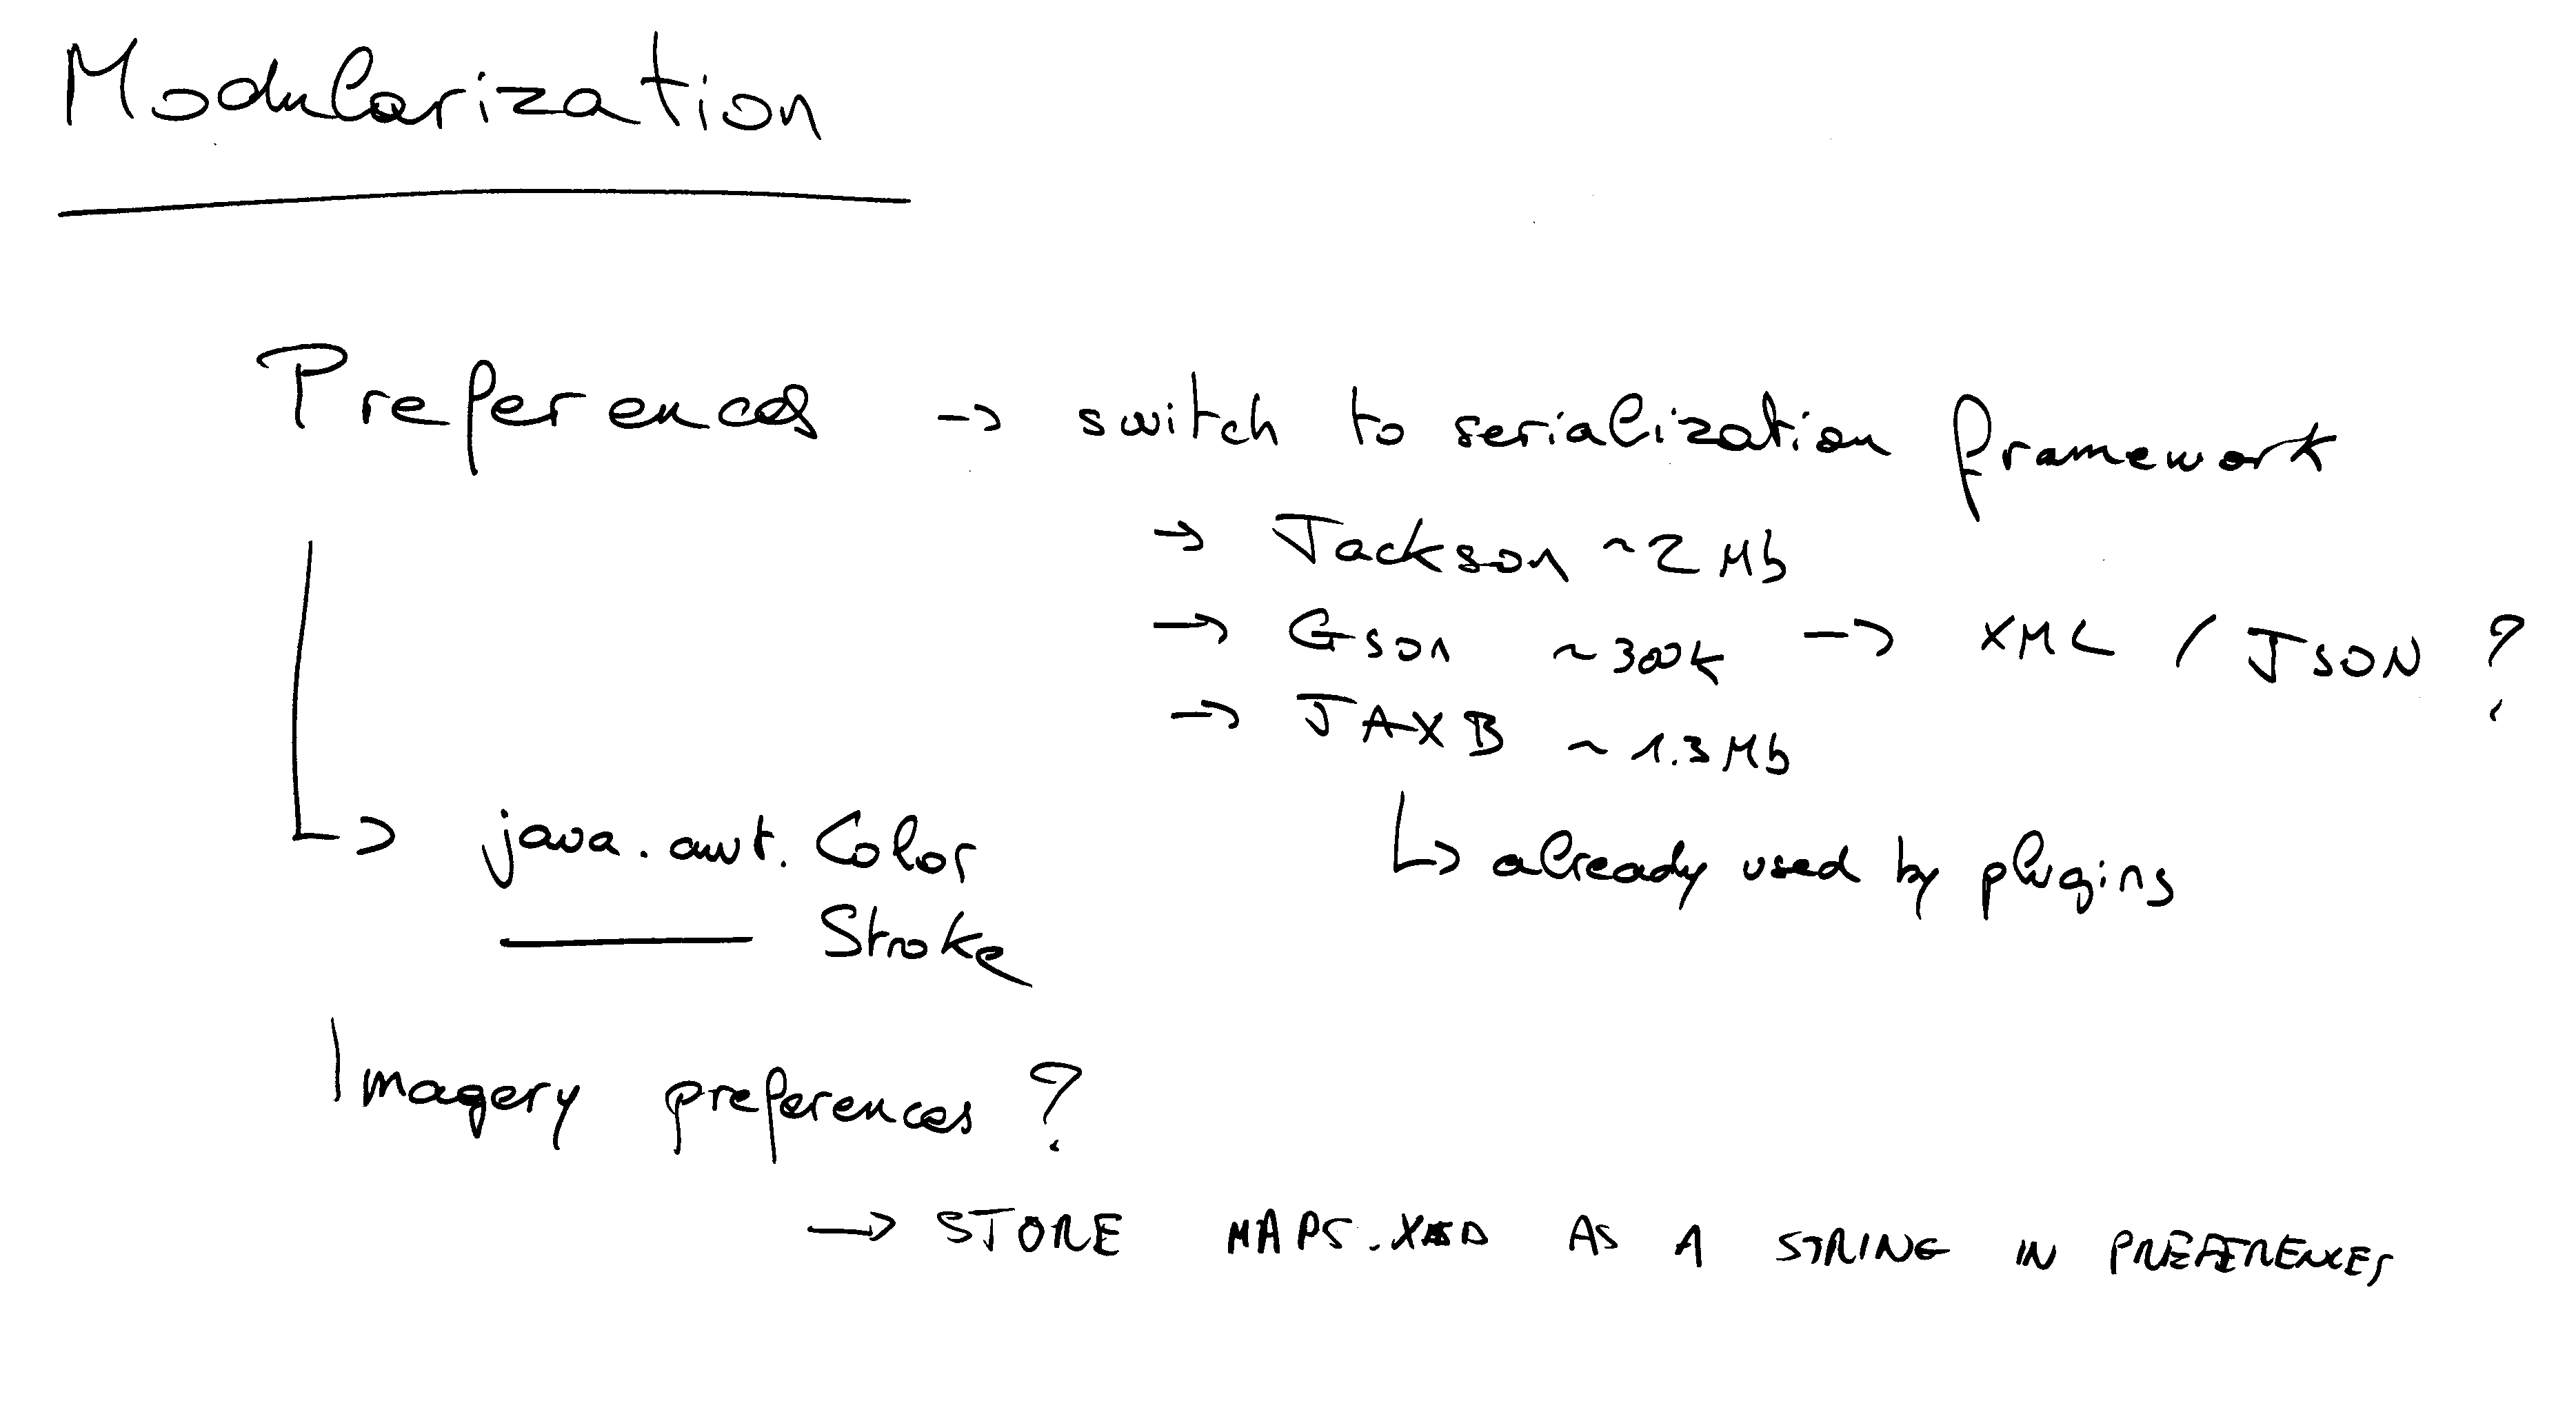 Modularization
Preferences -> switch to serialization framework
-> Jackson ~2 Mb
-> Gson ~300k -> XML / JSON ?
-> JAXB ~1.3Mb
-> already used by plugins
-> java.awt.Color
——— Stroke
Imagery preferences ?
-> STORE MAPS.XSD AS A STRING IN PREFERENCES